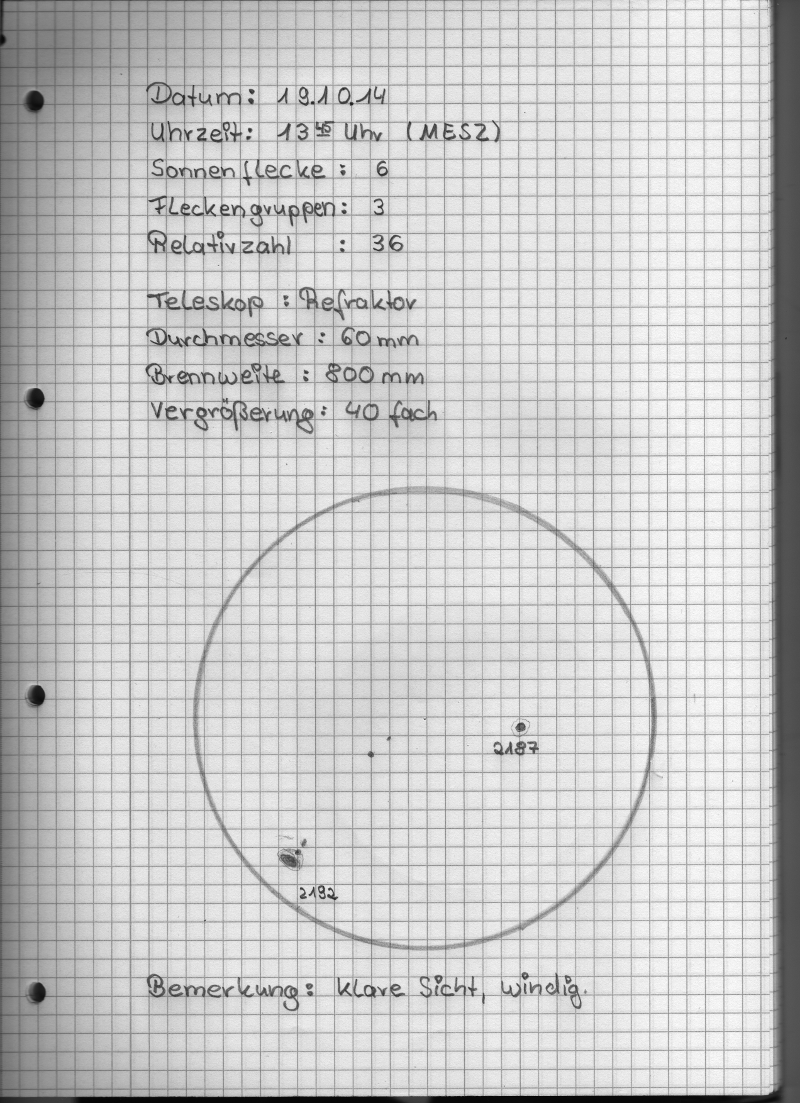 Datum: 19.10.14
Uhrzeit: 13 45 Uhr (MESZ)
Sonnenflecke: 6
Fleckengruppen: 3
Relativzahl : 36
Teleskop : Refraktor
Durchmesser : 60 mm
Brennweite : 800 mm
Vergrößerung: 40 fach
2187
2192
Bemerkung: klare Sicht, windig.